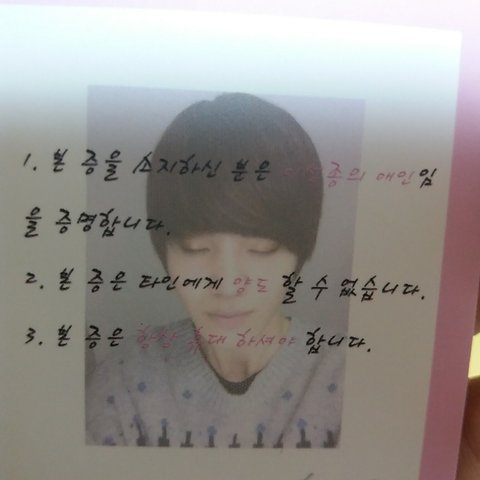 1. 본 증을 소지하신 분은 종의 애인임
을 증명합니다.
2. 본 증은 타인에게 양도 할 수 없습니다.
3. 본 증은 항상 휴대 하셔야 합니다.